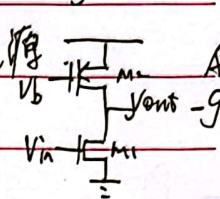 源
Vb M2
Vout -g
Vin M1